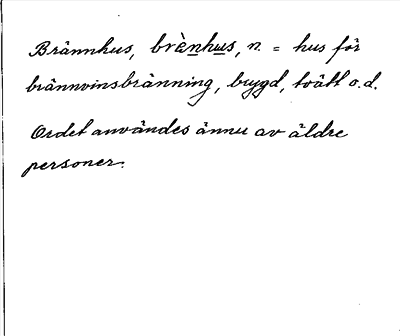 Brännhus, brènhus, n. = hus för
brännvinsbränning, brygd, tvätt o.d.
Ordet användes ännu av äldre
personer.